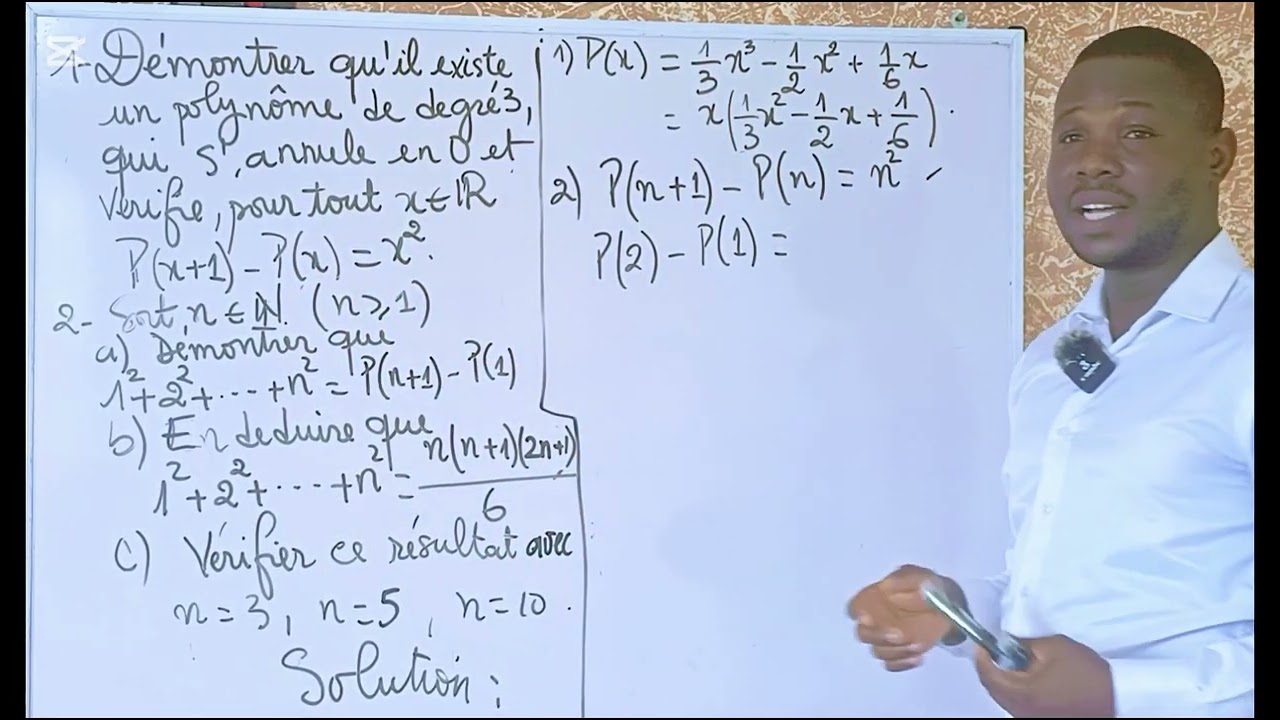 1- Démontrer qu'il existe
un polynôme de degré 3,
qui s'annule en 0 et
vérifie, pour tout x ∈ ℝ
P(x+1) - P(x) = x².
2- Soit n ∈ ℕ. (n ⩾ 1)
a) Démontrer que
1² + 2² + ... + n² = P(n+1) - P(1)
b) En deduire que
1² + 2² + ... + n² = n(n+1)(2n+1)/6
c) Vérifier ce résultat avec
n = 3, n = 5, n = 10.
Solution :
1) P(x) = 1/3 x³ - 1/2 x² + 1/6 x
= x(1/3 x² - 1/2 x + 1/6).
2) P(n+1) - P(n) = n²
P(2) - P(1) =